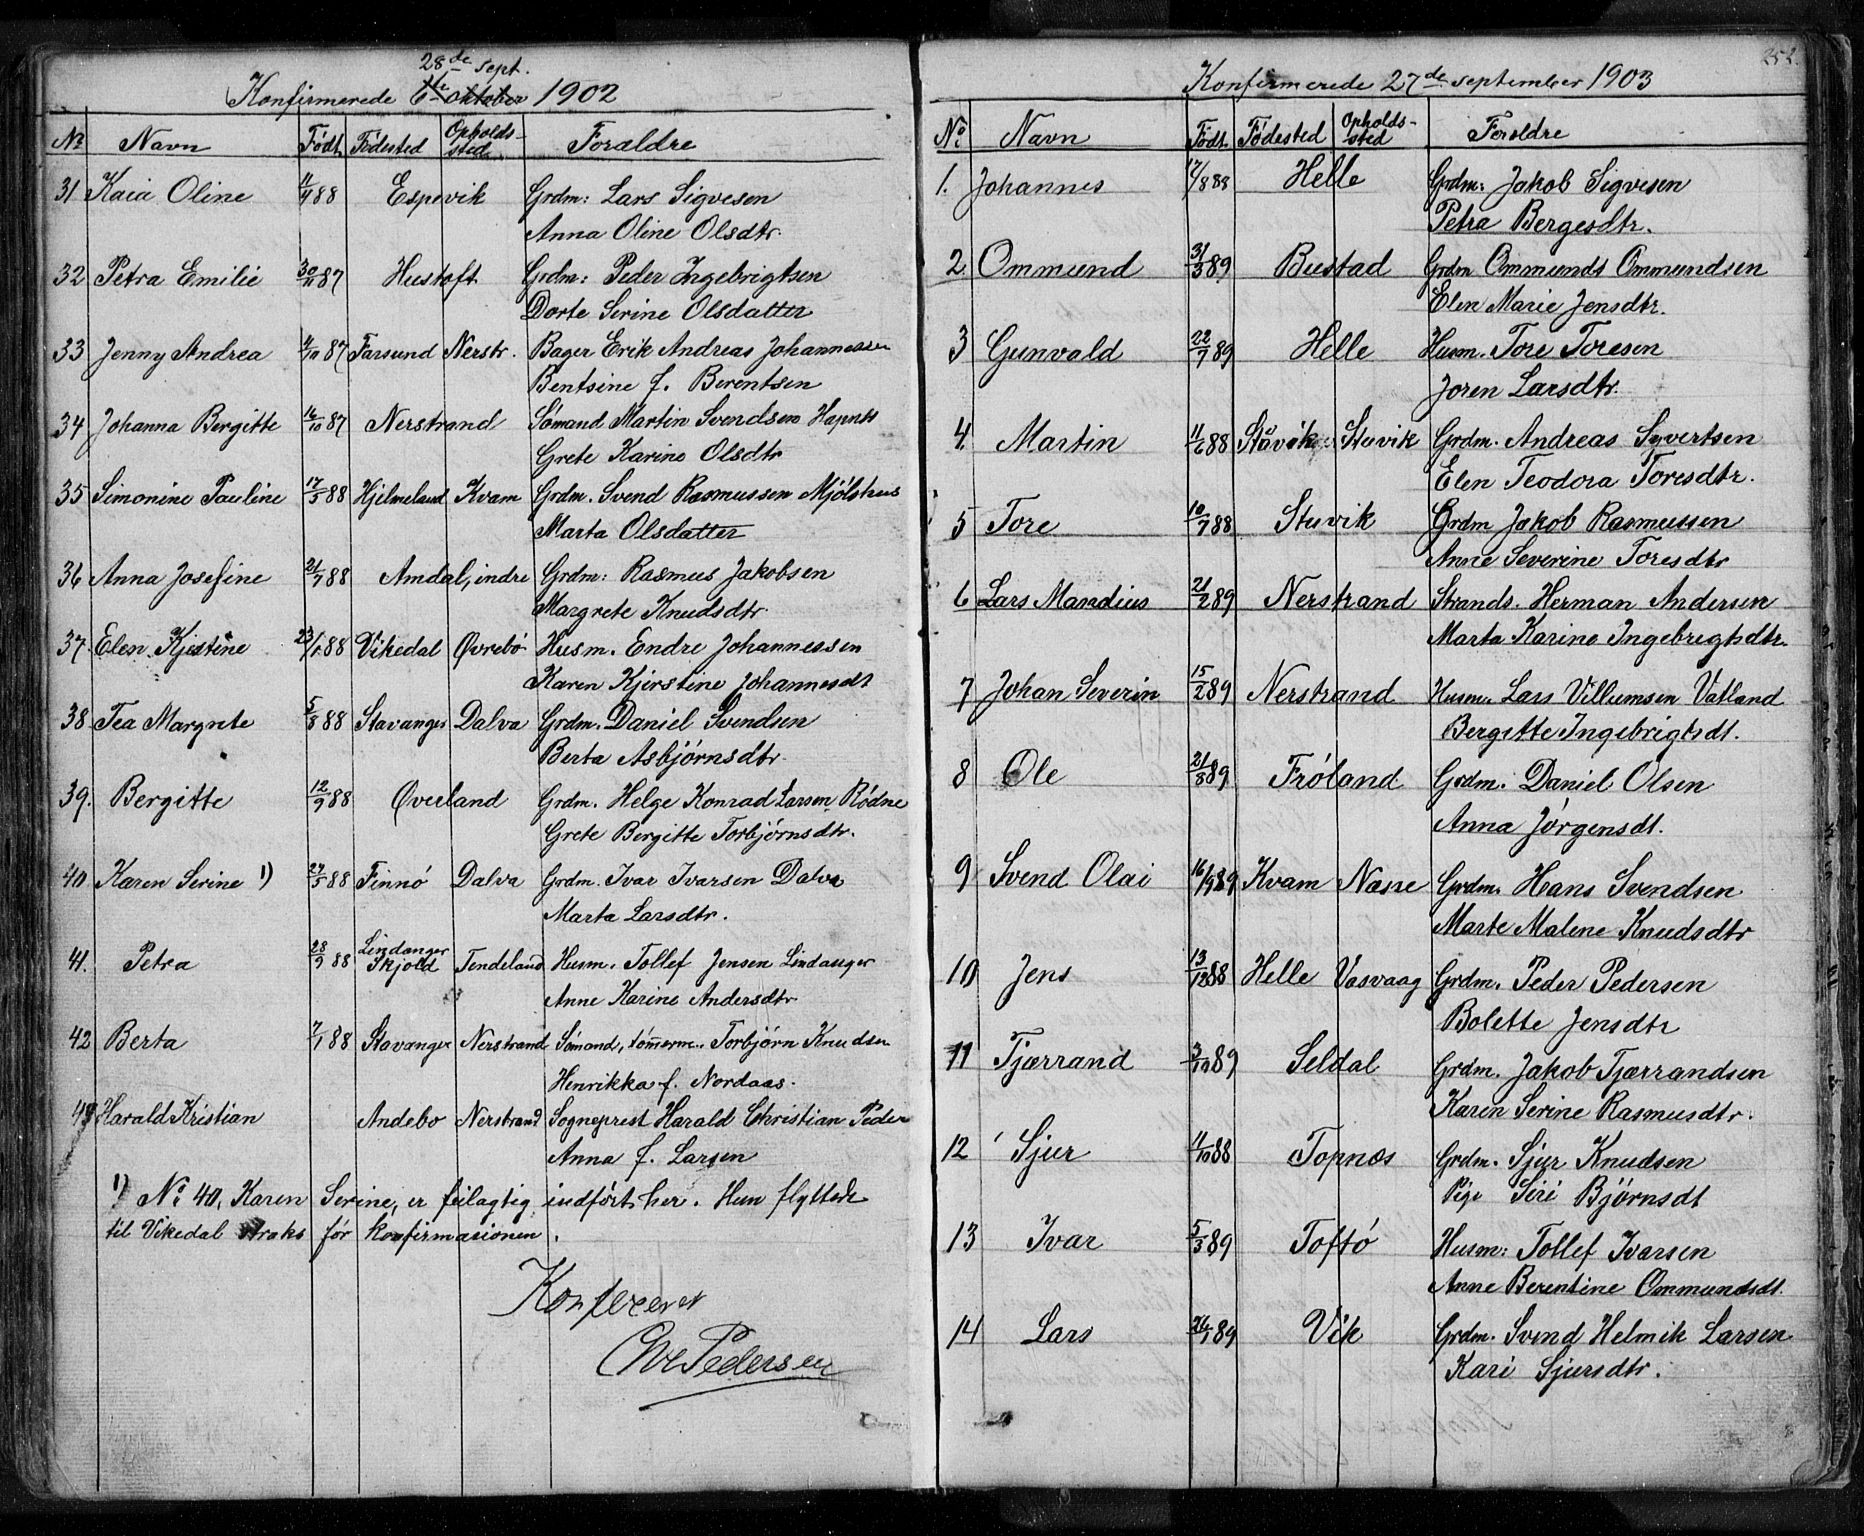 28de sept.
Konfirmerede 6te oktober 1902
No Navn Født Fødested Opholds-sted Forældre
31 Kaia Oline 11/9 88 Espevik Grdm: Lars Sigvesen
Anna Oline Olsdtr.
32 Petra Emilie 30/11 87 Hustoft Grdm: Peder Ingebrigtsen
Dorte Serine Olsdatter
33 Jenny Andrea /10 87 Farsund Nerstr. Bager Erik Andreas Johannessen
Bentsine f. Berentsen
34 Johanna Bergitte 16/10 87 Nerstrand Sömand Martin Svendsen
Grete Karine Olsdtr
35 Simonine Pauline 17/5 88 Hjelmeland Kvam Grdm. Svend Rasmussen Mjölshus
Marta Olsdatter
36 Anna Josefine 21/7 88 Amdal, indre Grdm: Rasmus Jakobsen
Margrete Knudsdtr.
37. Elen Kjestine 23/1 88 Vikedal Øvrebö Husm. Endre Johannessen
Karen Kjerstine Johannesdt
38. Tea Margrete 5/8 88 Stavanger Dalva Grdm. Daniel Svendsen
Berta Asbjörnsdtr.
39. Bergitte 12/9 88 Øverland Grdm. Helge Konrad Larsen Rödne
Grete Bergitte Torbjörnsdtr.
40 Karen Serine 1) 27/5 88 Finnö Dalva Grdm. Ivar Ivarsen Dalva
Marta Larsdtr.
41. Petra 28/9 88 Lindanger Skjold Tendeland Husm. Tollef Jensen Lindanger
Anne Karine Andersdtr.
42 Berta 7/1 88 Stavanger Nerstrand Sömand, tömerm. Torbjörn Knudsen
Henrikka f. Nordaas.
43 Harald Kristian Andebo Nerstrand Sogneprest Harald Christian Peder
Anna f. Larsen
1) No 40, Karen Serine, er feilagtig indfört her. Hun flyttede
til Vikedal straks för konfirmasionen.
Konfereret
Chr Pedersen
252.
Konfirmerede 27de september 1903
No Navn Födt Födested Opholds-sted Foreldre
1. Johannes 17/8 88 Helle Grdm: Jakob Sigvesen
Petra Bergesdtr.
2. Ommund 31/3 89 Bustad Grdm Ommunds Ommundsen
Elen Marie Jensdtr.
3 Gunvald 22/7 89 Helle Husm. Tore Toresen
Joren Larsdtr.
4. Martin 11/6 88 Stuvik Grdm. Andreas Syvertsen
Elen Teodora Toresdtr.
5 Tore 10/7 88 Stuvik Grdm Jakob Rasmussen
Anne Severine Toresdtr
6 Lars Mandius 21/2 89 Nerstrand Strands. Herman Andersen
Marta Karine Ingebregtsdtr.
7 Johan Severin 15/2 89 Nerstrand Husm. Lars Villumsen Vatland
Bergitte Ingebrigtsdt.
8 Ole 21/5 89 Fröland Grdm. Daniel Olsen
Anna Jörgensdt.
9 Svend Olai 16/9 89 Kvam Næsse Grdm. Hans Svendsen
Marte Malene Knudsdtr
10 Jens 13/12 88 Helle Vasvaag Grdm. Peder Pedersen
Bolette Jensdtr
11 Tjærrand 3/10 89 Seldal Grdm. Jakob Tjærrandsen
Karen Serine Rasmusdtr.
12 Sjur 11/10 88 Topnes Grdm. Sjur Knudsen
Pige Siri Björnsdt
13 Ivar 5/3 89 Toftö Husm: Tollef Ivarsen
Anne Berentine Ommundsdt.
14 Lars 26/1 89 Vik Grdm. Svend Helmik Larsen
Kari Sjursdtr.